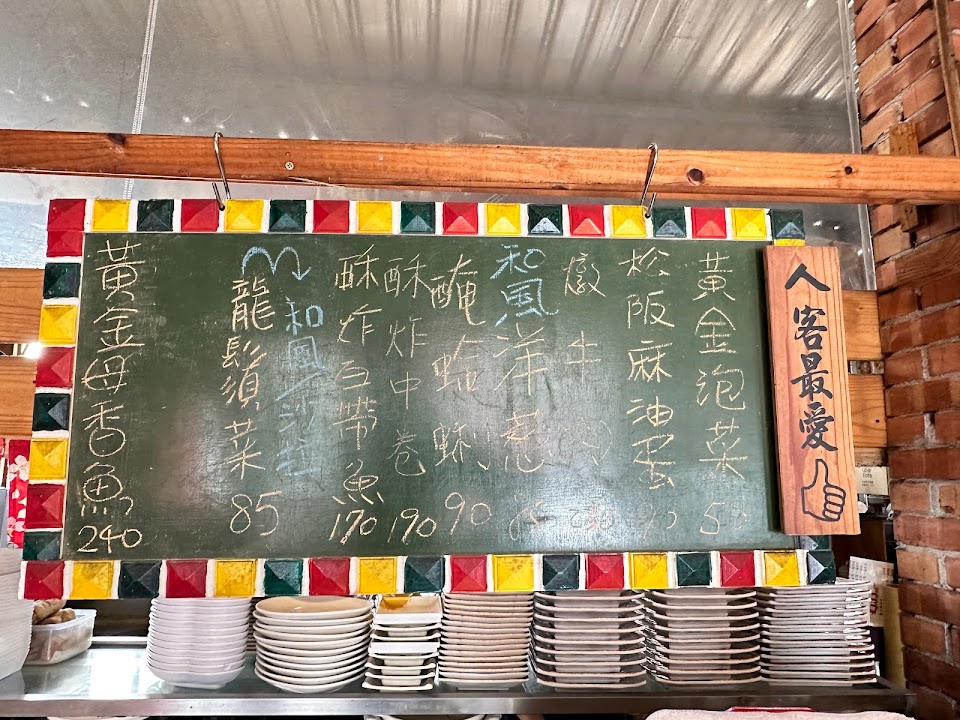 人客最愛
黃金泡菜 50
松阪麻油蛋
燉牛肉
和風洋蔥
醃蛤蜊 90
酥炸中卷 190
酥炸白帶魚 170
和風沙拉
龍鬚菜 85
黃金母香魚 240